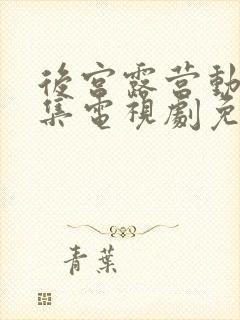 後宮露营動
集電視劇免
青葉